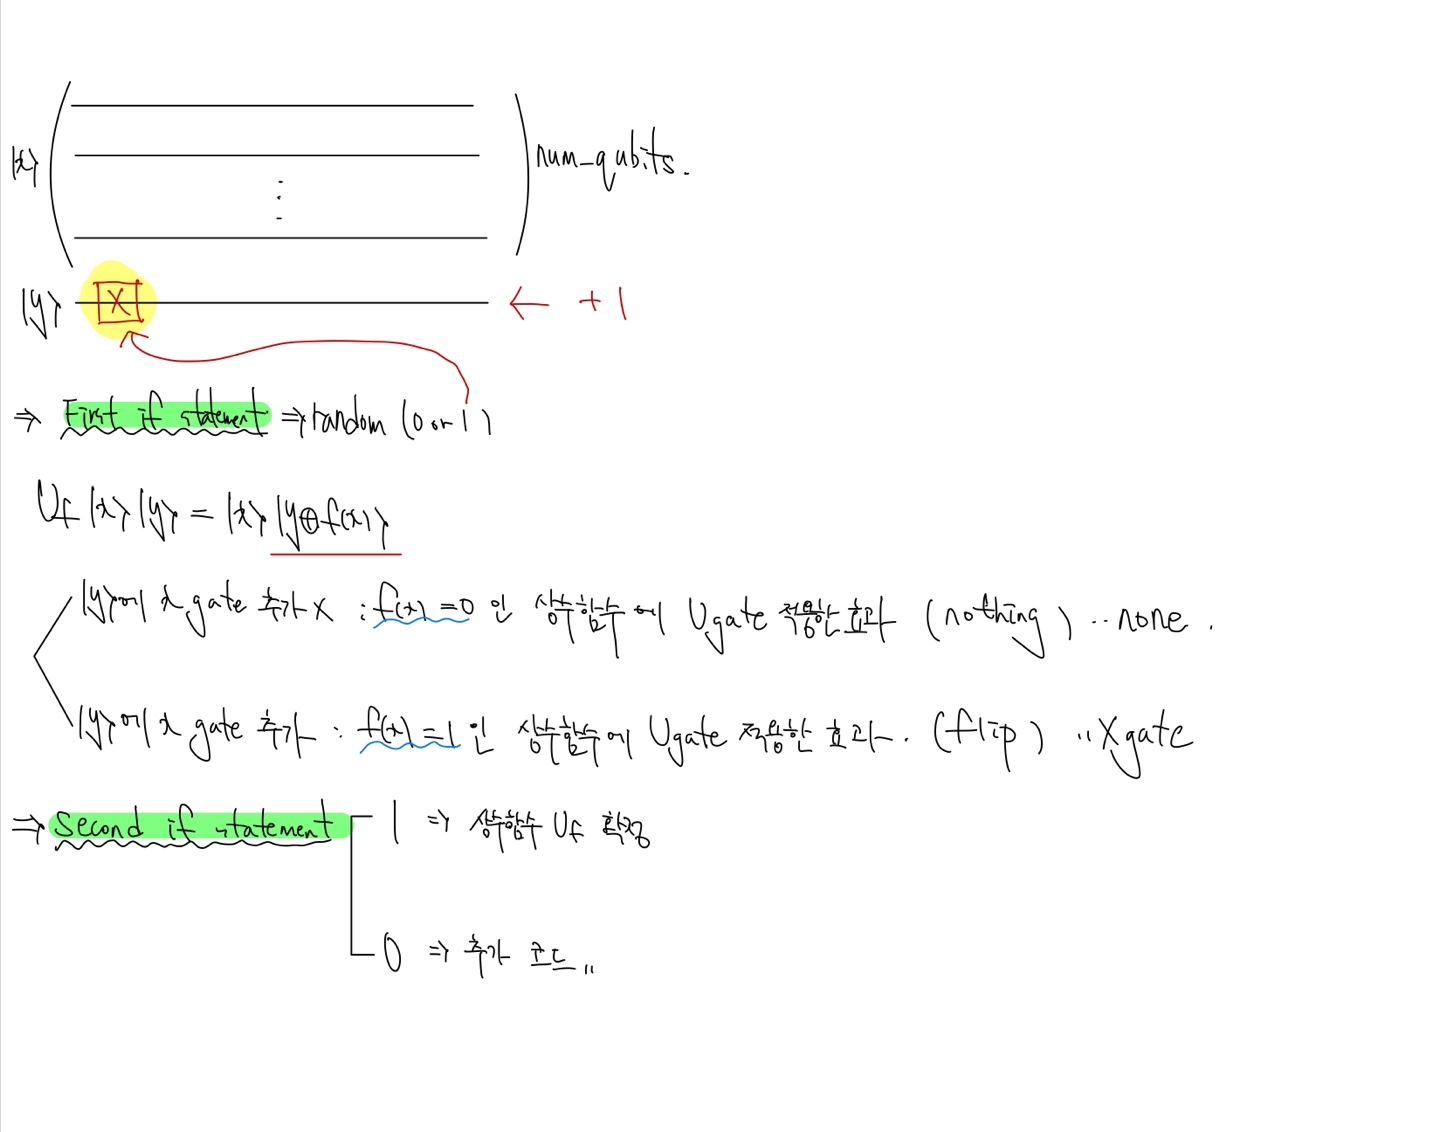 |x⟩
num_qubits.
|y⟩ X ← +1
⇒ First if statement ⇒ random (0 or 1)
Uf |x⟩|y⟩ = |x⟩|y⊕f(x)⟩
|y⟩에 x gate 추가 X : f(x) = 0 인 상수함수에 U gate 적용한 효과 (nothing) .. none.
|y⟩에 x gate 추가 : f(x) = 1 인 상수함수에 U gate 적용한 효과. (flip) .. X gate
⇒ Second if statement
1 ⇒ 상수함수 Uf 확정
0 ⇒ 추가 코드..